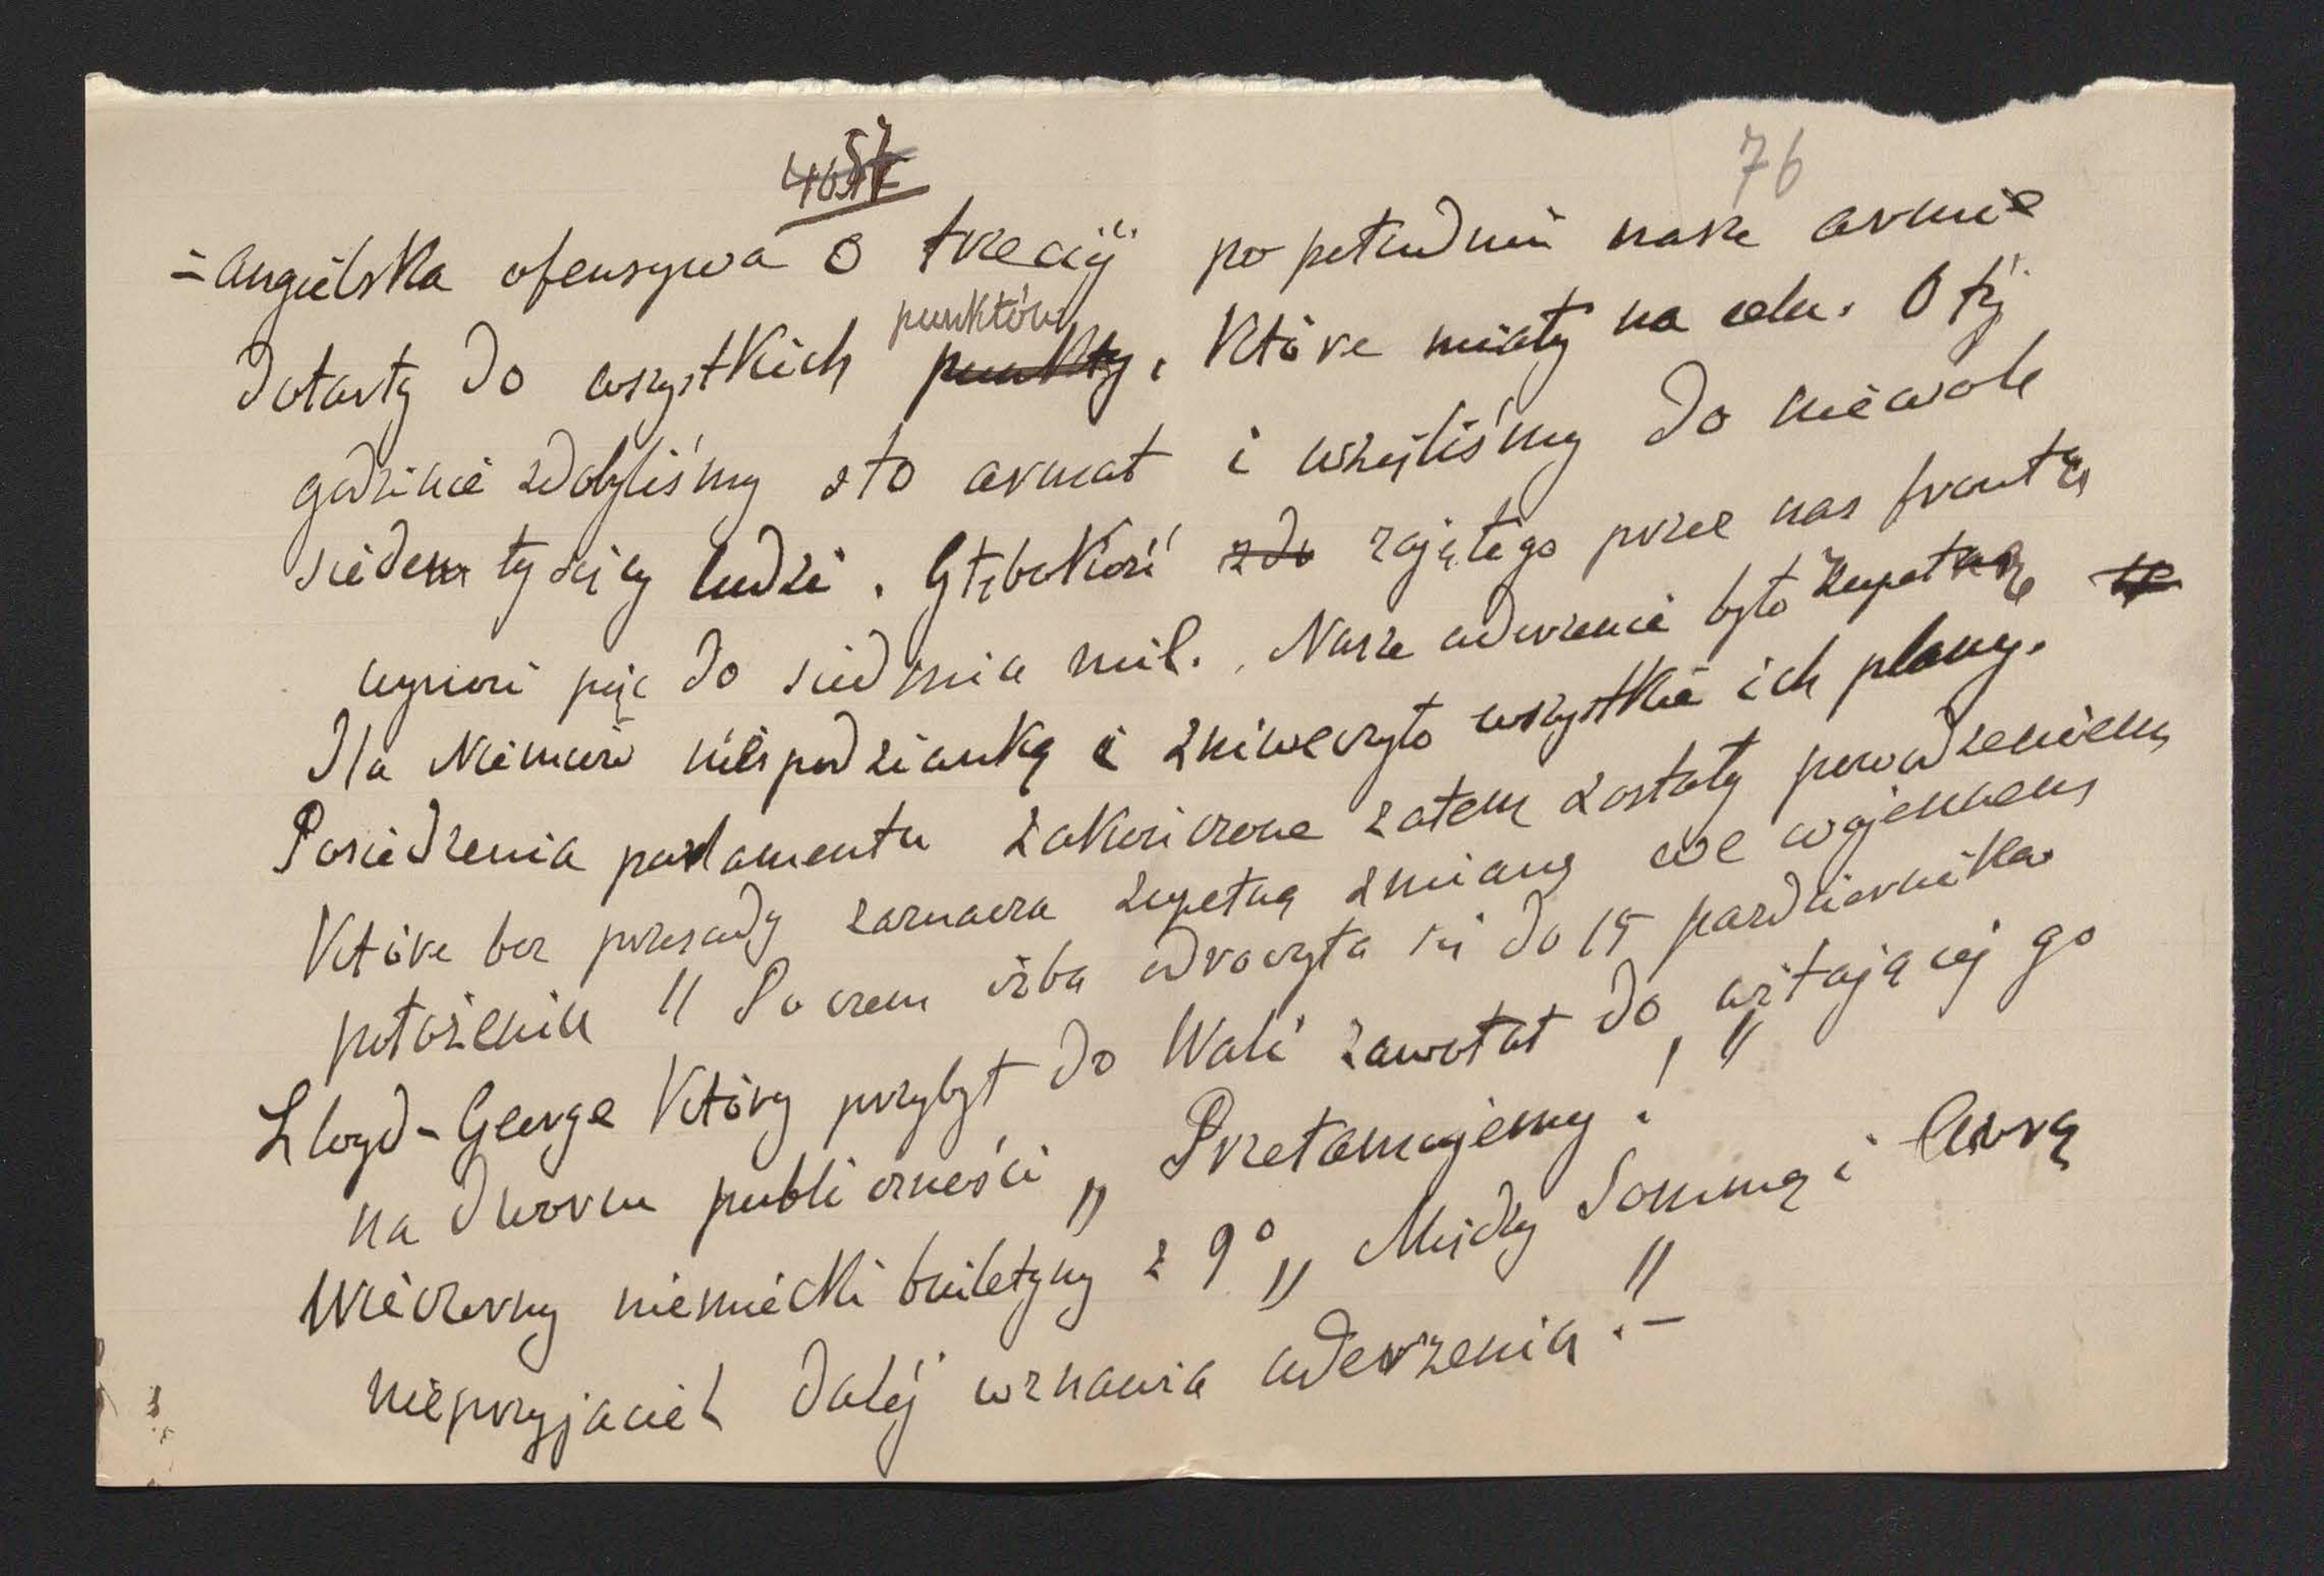 76
=angielska ofensywa o trzeciej po południu nasze armie
punktów
dotarły do wszystkich punkty, które miały na celu. O tej
godzinie zdobyliśmy sto armat i wzięliśmy do niewoli
siedem tysięcy ludzi. Głębokość zdo zajętego przez nas frontu
wynosi pięć do siedmia mil. Nasze uderzenie było zupełną
dla Niemców niespodzianką i zniweczyło wszystkie ich plany.
Posiedzenia parlamentu zakończone zatem zostały powodzeniem
które bez przesady zaznacza zupełną zmianę we wojennem
położeniu" Po czem izba odroczyła się do 15 października
Lloyd-George który przybył do Wali zawołał do witającej go
na dworcu publiczności „Przełamujemy!"
Wieczorny niemiecki buletyny z 9° „Między Sommą i Avrą
nieprzyjaciel dalej wznawia uderzenia."-